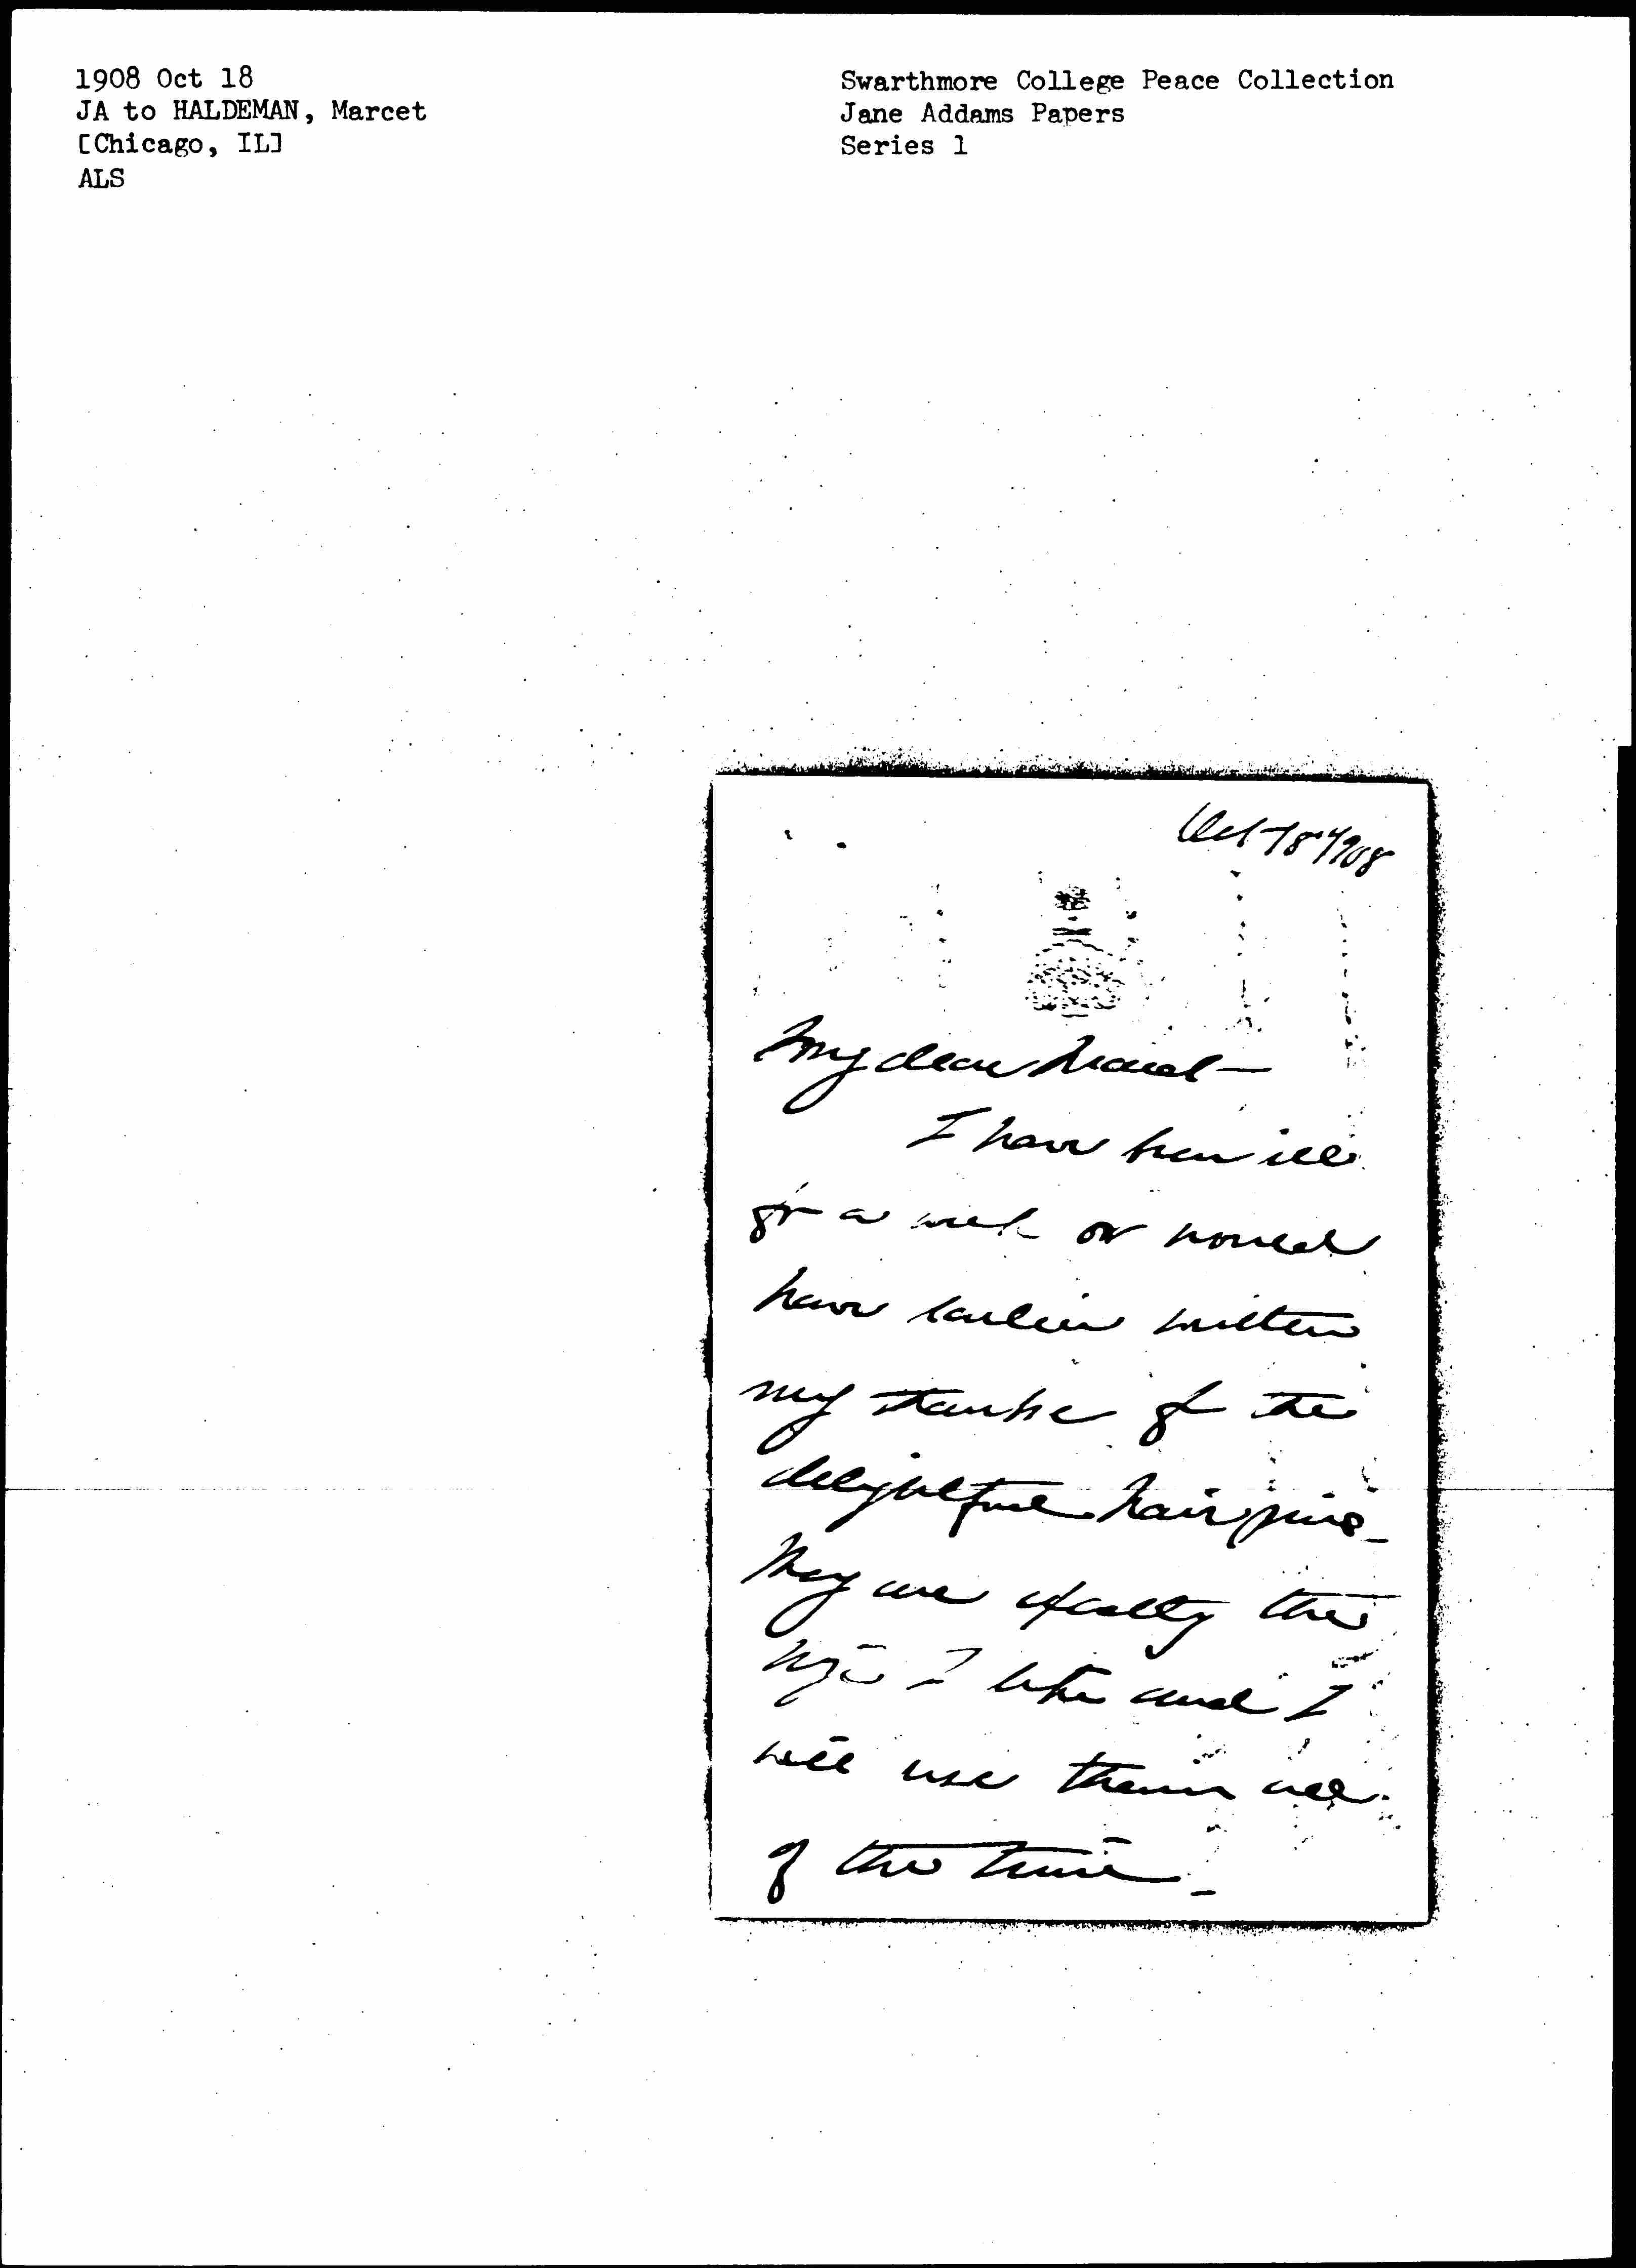 1908 Oct 18
JA to HALDEMAN, Marcet
[Chicago, IL]
ALS
Swarthmore College Peace Collection
Jane Addams Papers
Series 1
Oct 18" 1908
My dear Marcet —
I have been ill
for a week or would
have earlier written
my thanks for the
delightful hair pins_
They are exactly the
I like and I
will use them all
of the time_